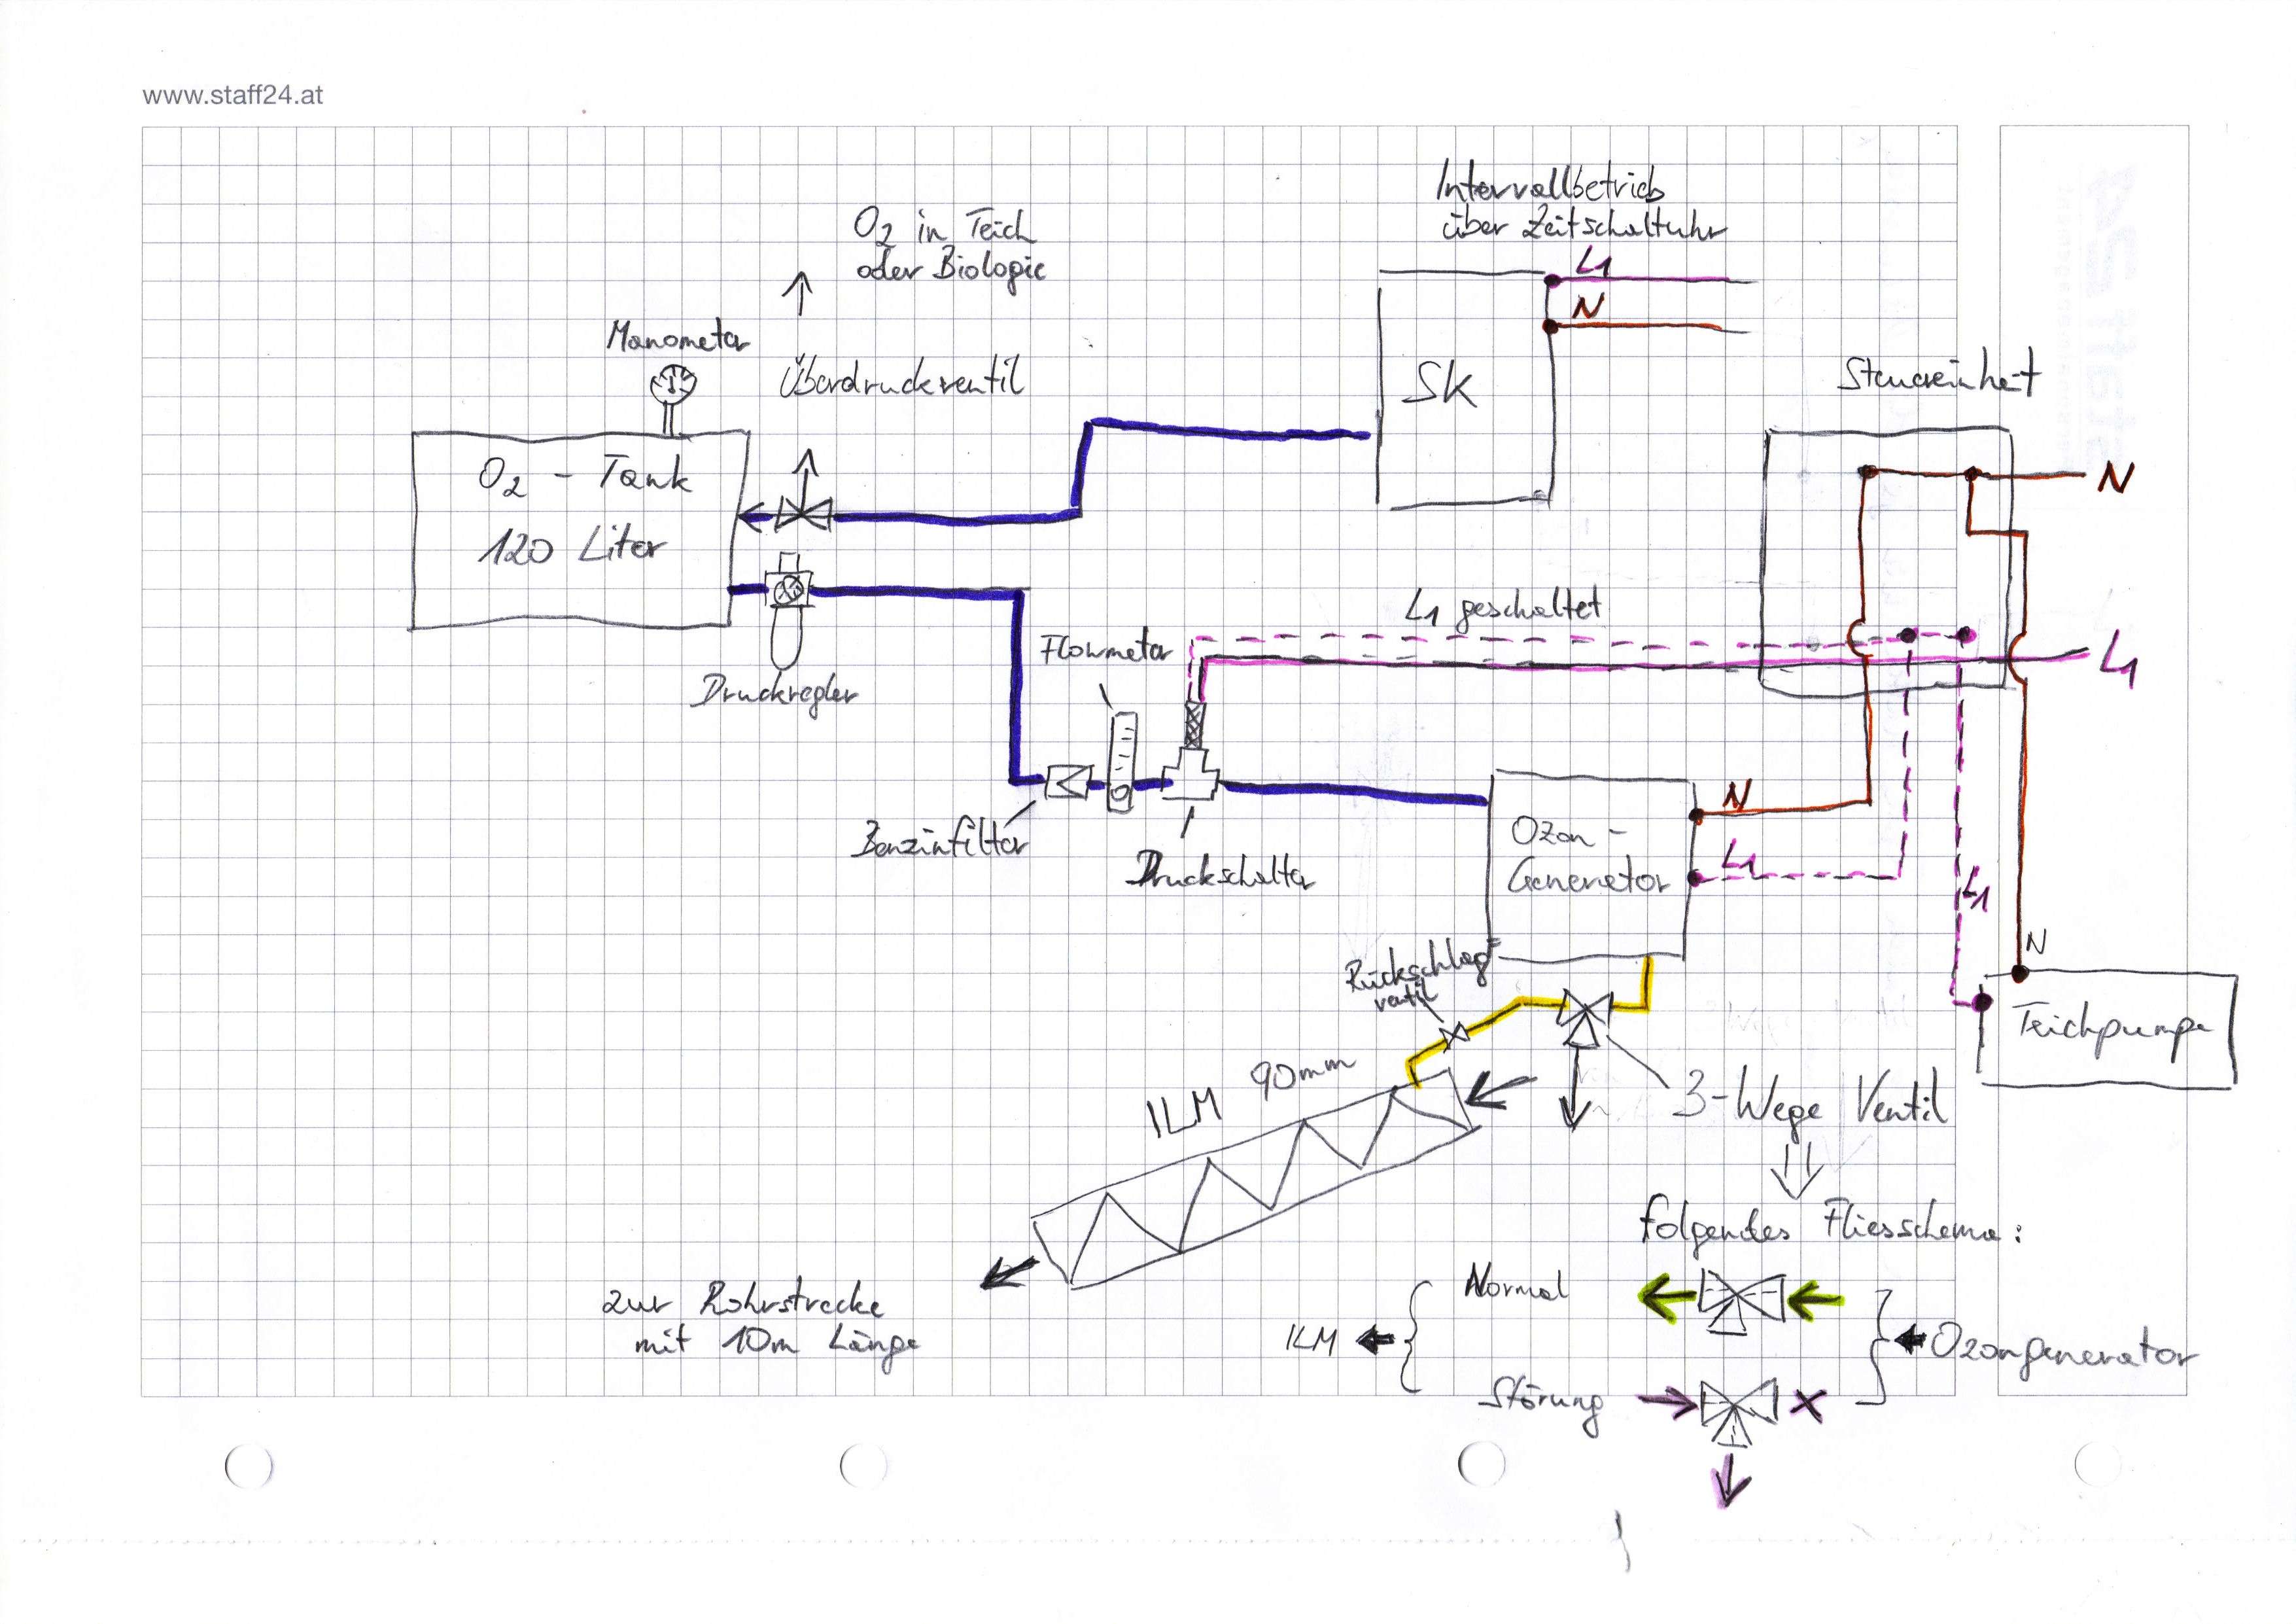 www.staff24.at
Intervallbetrieb
über Zeitschaltuhr
L1
N
SK
O2 in Teich
oder Biologie
Manometer
Überdruckventil
O2 - Tank
120 Liter
Druckregler
Steuereinheit
N
L1 geschaltet
L1
Flowmeter
Benzinfilter
Druckschalter
Ozon -
Generator
N
L1
L1
N
Teichpumpe
Rückschlag
ventil
ILM 90mm
3-Wege Ventil
folgendes Fliesschema:
zur Rohrstrecke
mit 10m Länge
Normal
ILM
Ozongenerator
Störung